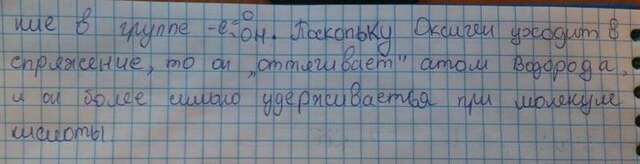 ние в группе -C=O OH. Поскольку Оксиген уходит в
спряжение, то он „оттягивает" атом водорода,
и он более сильно удерживается при молекуле
кислоты